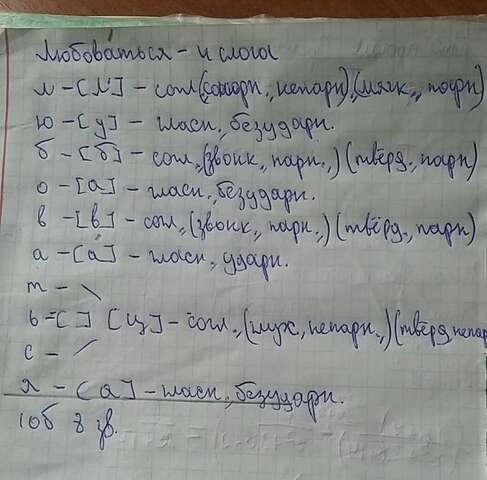 Любоваться - 4 слога
л - [л'] - согл., (сонорн., непарн.), (мягк., парн)
ю - [у] - гласн., безударн.
б - [б] - согл., (звонк., парн.,) (твёрд., парн)
о - [а] - гласн., безударн.
в - [в] - согл., (звонк., парн.,) (твёрд., парн)
а - [а] - гласн., ударн.
т - \
ь - [ ] [ц] - согл., (глух., непарн.,) (твёрд непар
с - /
я - [а] - гласн., безударн.
10б 8 зв.